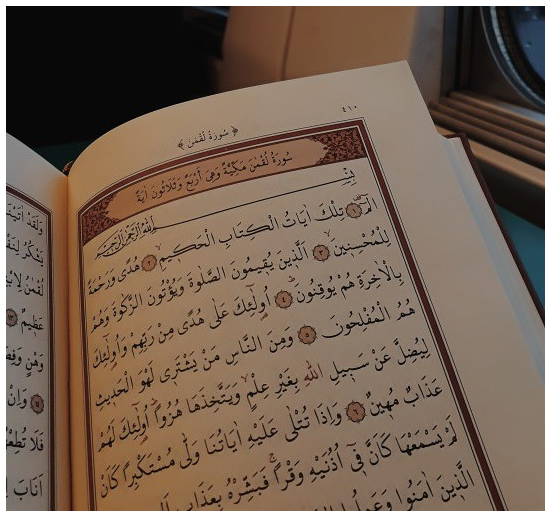 ٤١٠
﴿ سُورَةُ لُقْمٰنَ ﴾
سُورَةُ لُقْمٰنَ مَكِّيَّةٌ وَهِيَ اَرْبَعٌ وَثَلَاثُونَ اٰيَةً
بِسْــــمِ اللّٰهِ الرَّحْمٰنِ الرَّحِيمِ
الٓمٓ ﴿١﴾ تِلْكَ اٰيَاتُ الْكِتَابِ الْحَكِيمِ ﴿٢﴾ هُدًى وَرَحْمَةً
لِلْمُحْسِنِينَ ﴿٣﴾ اَلَّذِينَ يُقِيمُونَ الصَّلٰوةَ وَيُؤْتُونَ الزَّكٰوةَ وَهُمْ
بِالْاٰخِرَةِ هُمْ يُوقِنُونَ ﴿٤﴾ اُولٰٓئِكَ عَلٰى هُدًى مِنْ رَبِّهِمْ وَاُولٰٓئِكَ
هُمُ الْمُفْلِحُونَ ﴿٥﴾ وَمِنَ النَّاسِ مَنْ يَشْتَرِى لَهْوَ الْحَدِيثِ
لِيُضِلَّ عَنْ سَبِيلِ اللّٰهِ بِغَيْرِ عِلْمٍ وَيَتَّخِذَهَا هُزُوًا اُولٰٓئِكَ لَهُمْ
عَذَابٌ مُهِينٌ ﴿٦﴾ وَاِذَا تُتْلٰى عَلَيْهِ اٰيَاتُنَا وَلّٰى مُسْتَكْبِرًا كَاَنْ
لَمْ يَسْمَعْهَا كَاَنَّ فِٓى اُذُنَيْهِ وَقْرًا فَبَشِّرْهُ بِعَذَابٍ
الَّذِينَ اٰمَنُوا وَعَمِلُوا
وَلَقَدْ اٰتَيْنَا
عَظِيمٌ ﴿١٣﴾
وَاِنْ
فَلَا تُطِعْهُمَا
اَنَابَ